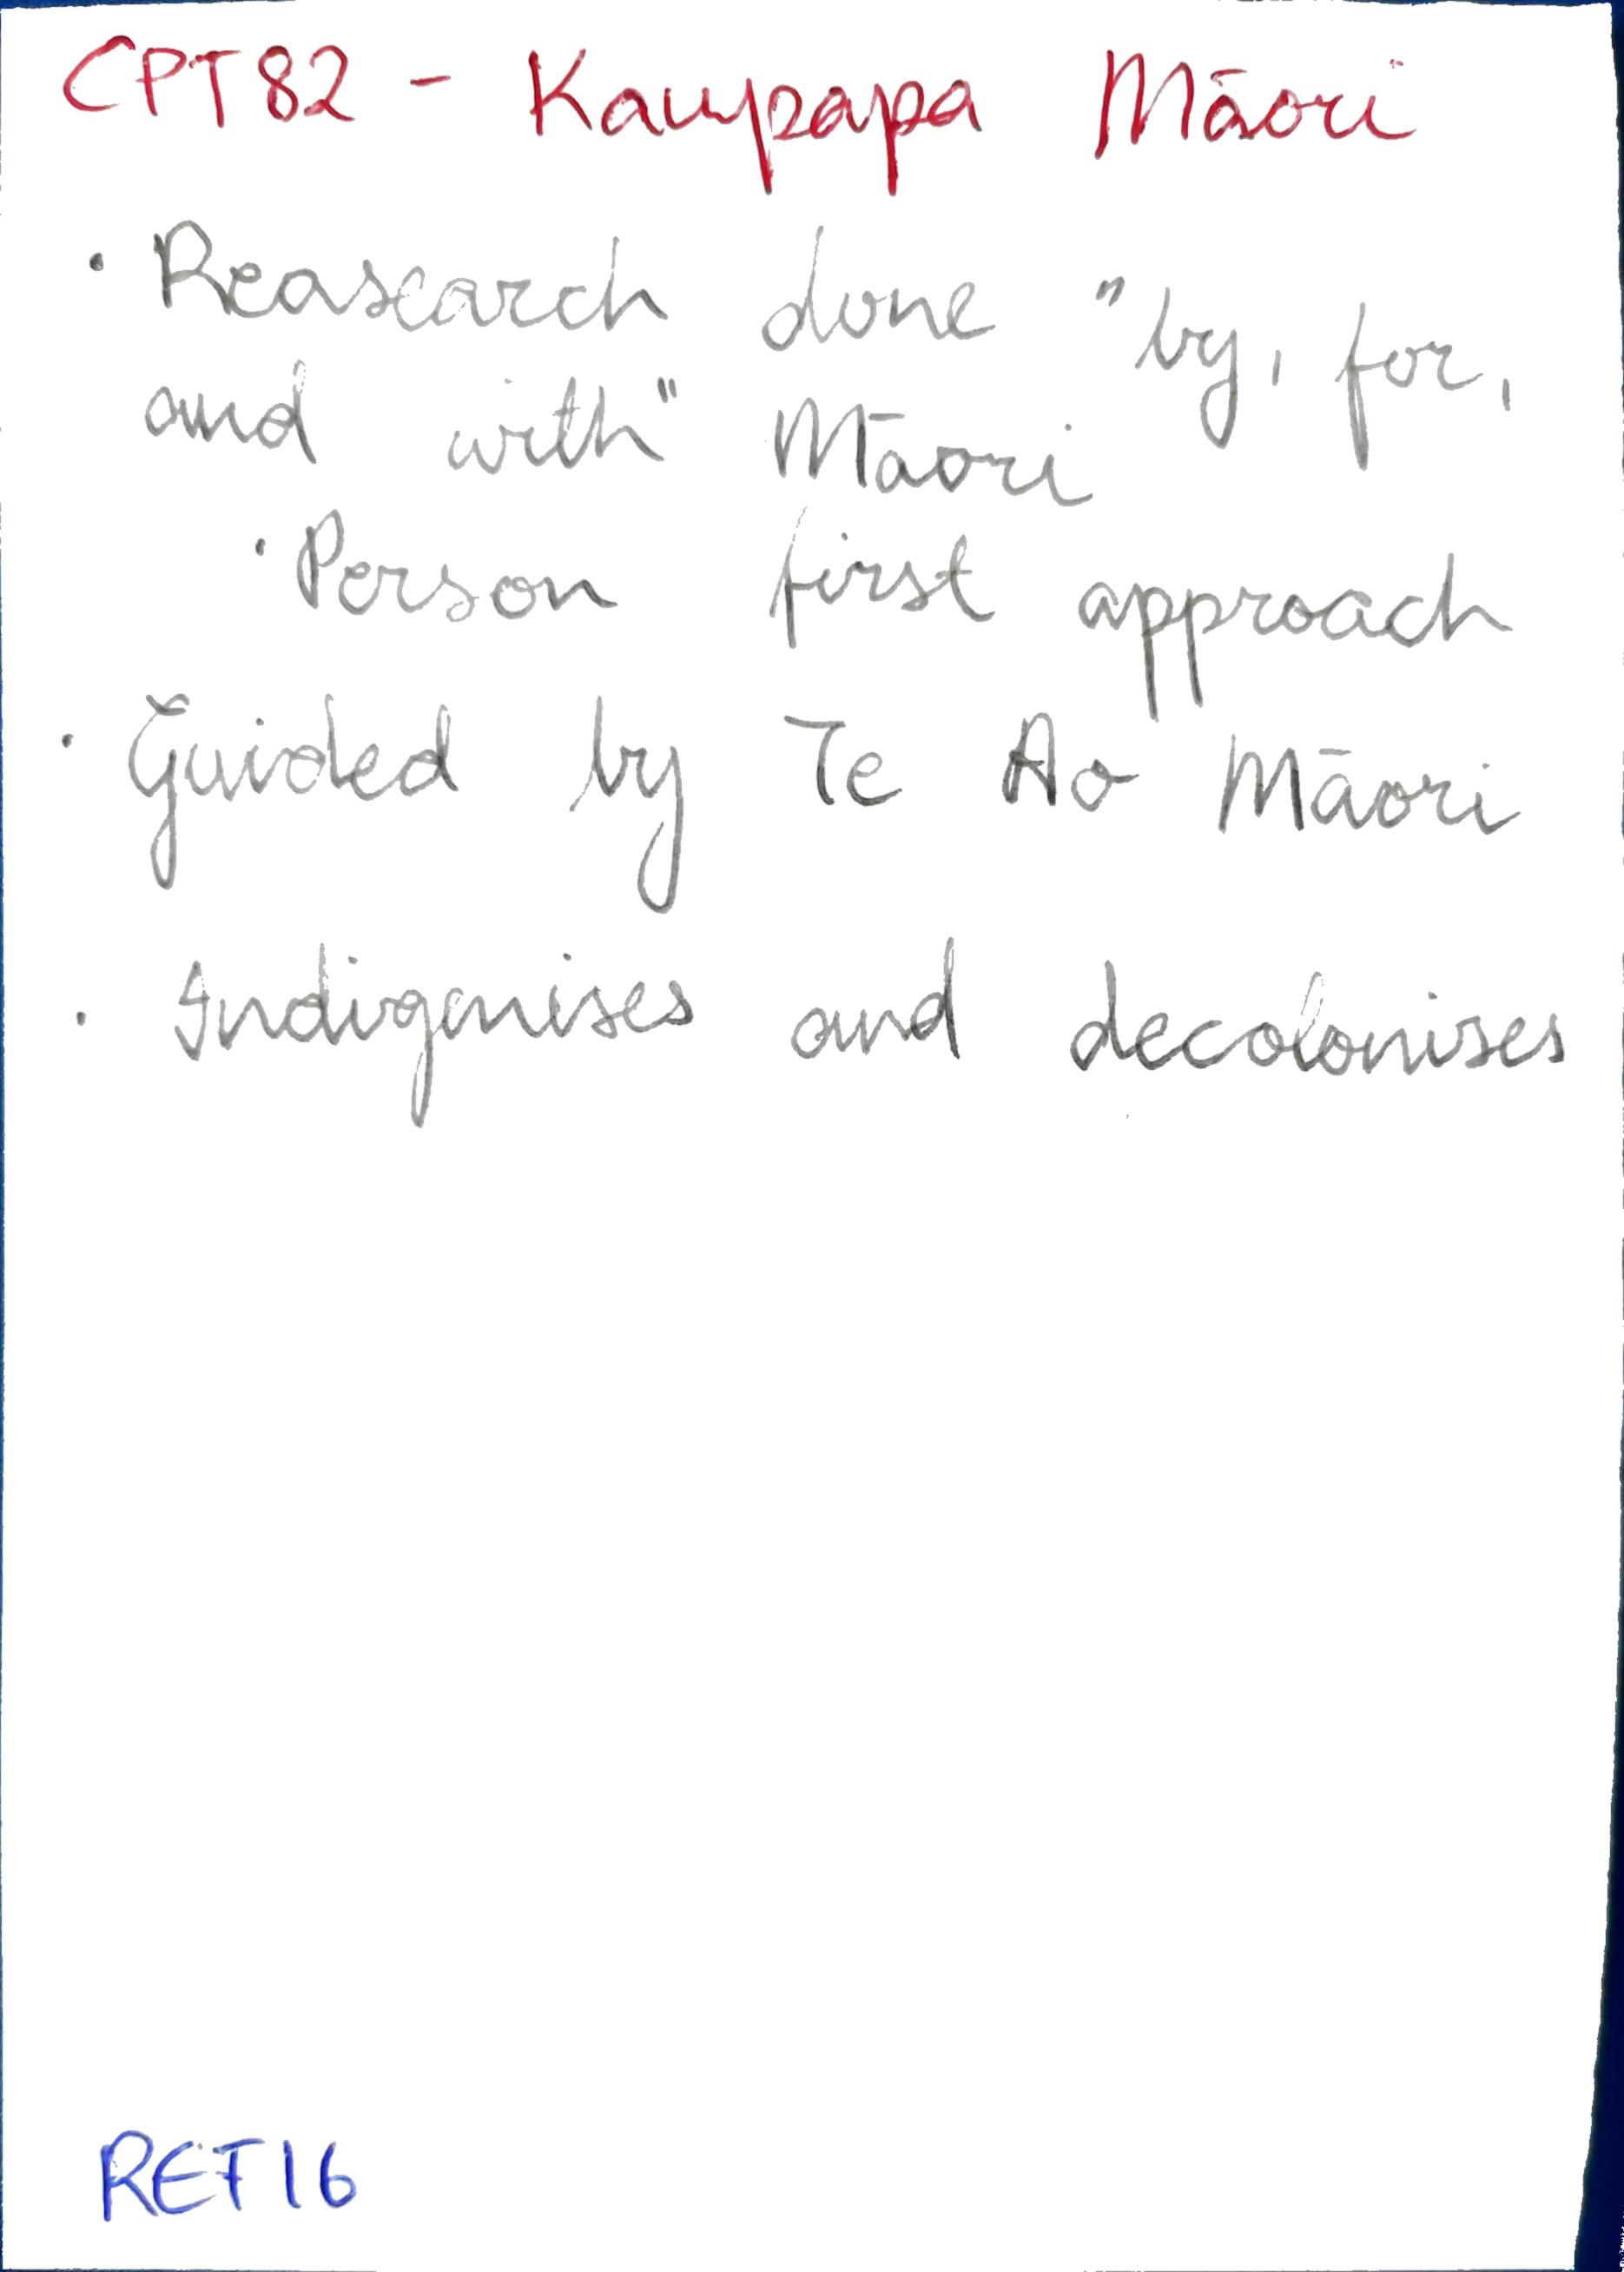 CPT82 - Kaupapa Māori
· Reasearch done "by, for,
and with" Māori
· Person first approach
· Guided by Te Ao Māori
· Indigenises and decolonises
REF16